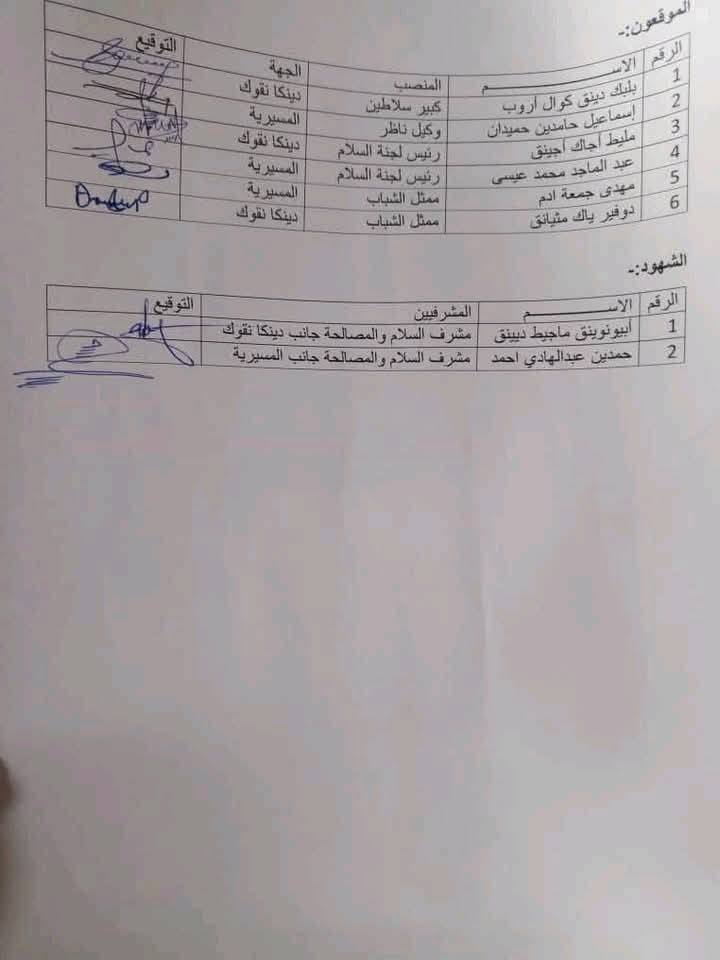 الموقعون:-
الرقم الاســـــــم المنصب الجهة التوقيع
1 بلبك دينق كوال أروب كبير سلاطين دينكا نقوك
2 إسماعيل حامدين حميدان وكيل ناظر المسيرية
3 مليط أجاك أجينق رئيس لجنة السلام دينكا نقوك
4 عبد الماجد محمد عيسى رئيس لجنة السلام المسيرية
5 مهدى جمعة ادم ممثل الشباب المسيرية
6 دوفير ياك مثيانق ممثل الشباب دينكا نقوك
الشهود:-
الرقم الاســـــــم المشرفيين التوقيع
1 أبيونوينق ماجيط ديينق مشرف السلام والمصالحة جانب دينكا نقوك
2 حمدين عبدالهادي احمد مشرف السلام والمصالحة جانب المسيرية